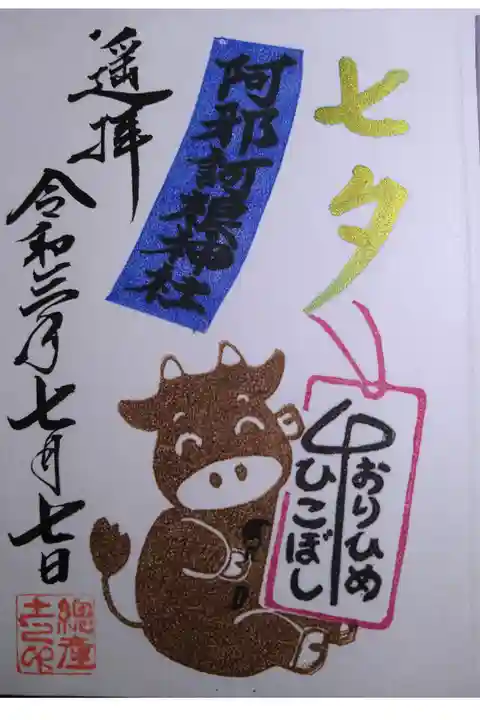 七夕
おりひめ
ひこぼし
阿邪訶根神社
遥拝
令和三年七月七日